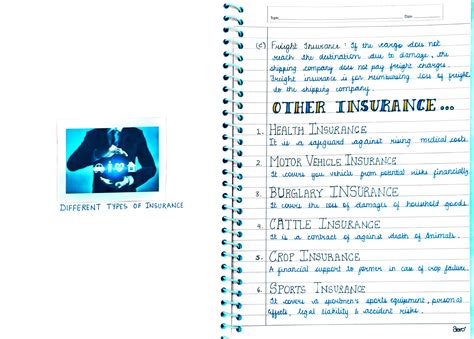 DIFFERENT TYPES OF INSURANCE
Topic
Date
(c) Freight Insurance : If the cargo does not
reach the destination due to damage, the
shipping company does not pay freight charges.
Freight insurance is for reimbursing loss of freight
to the shipping company.
OTHER INSURANCE...
1. HEALTH INSURANCE
It is a safeguard against rising medical costs.
2. MOTOR VEHICLE INSURANCE
It covers you vehicle from potential risks financially
3. BURGLARY INSURANCE
It covers the loss of damages of household goods.
4. CATTLE INSURANCE
It is a contract of against death of Animals.
5. CROP INSURANCE
A financial support to farmer in case of crop failure.
6. SPORTS INSURANCE
It covers a sportsmen's sports equipment, personal
effects, legal liability & accident risks.